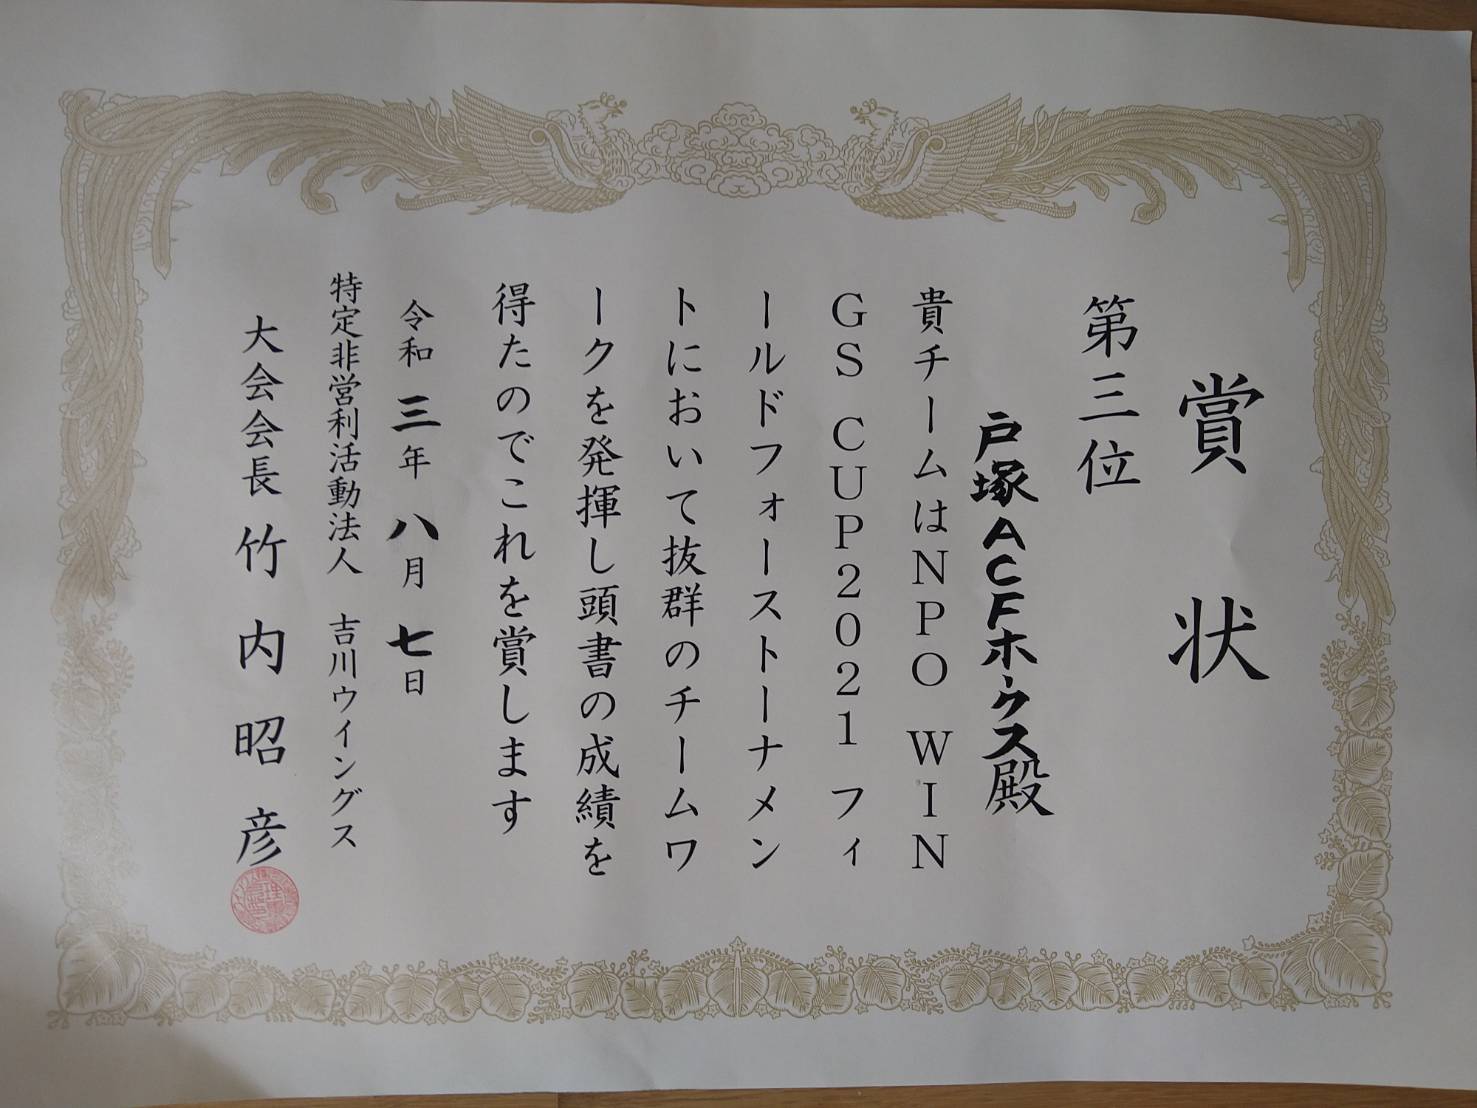 賞状
第三位
戸塚ACFホークス殿
貴チームはNPO WIN
GS CUP2021フィ
ールドフォーストーナメン
トにおいて抜群のチームワ
ークを発揮し頭書の成績を
得たのでこれを賞します
令和三年八月七日
特定非営利活動法人 吉川ウイングス
大会会長 竹内昭彦